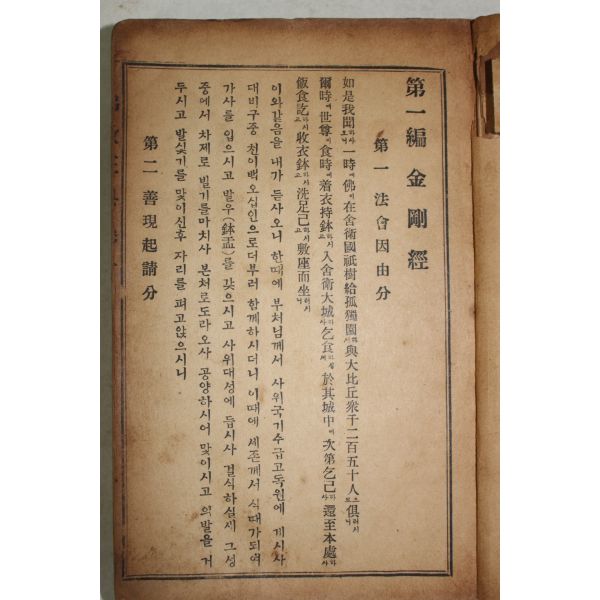 第一編 金剛經
第一 法會因由分
如是我聞하사오니 一時에 佛이 在舍衛國祇樹給孤獨園하사 與大比丘衆千二百五十人으로 俱러시니
爾時에 世尊이 食時에 着衣持鉢하시고 入舍衛大城하사 乞食하실새 於其城中에 次第乞已하사 還至本處하사
飯食訖하시고 收衣鉢하시고 洗足已하시고 敷座而坐러시니
이와같음을 내가 듣사오니 한때에 부처님께서 사위국기수급고독원에 계시사
대비구중 천이백오십인으로더부러 함께하시더니 이때에 세존께서 식때가되여
가사를 입으시고 발우(鉢盂)를 갖으시고 사위대성에 듭시사 걸식하실새 그성
중에서 차제로 빌기를마치사 본처로도라오사 공양하시어 맟이시고 의발을 거
두시고 발싳기를 맟이신후 자리를 펴고앉으시니
第二 善現起請分